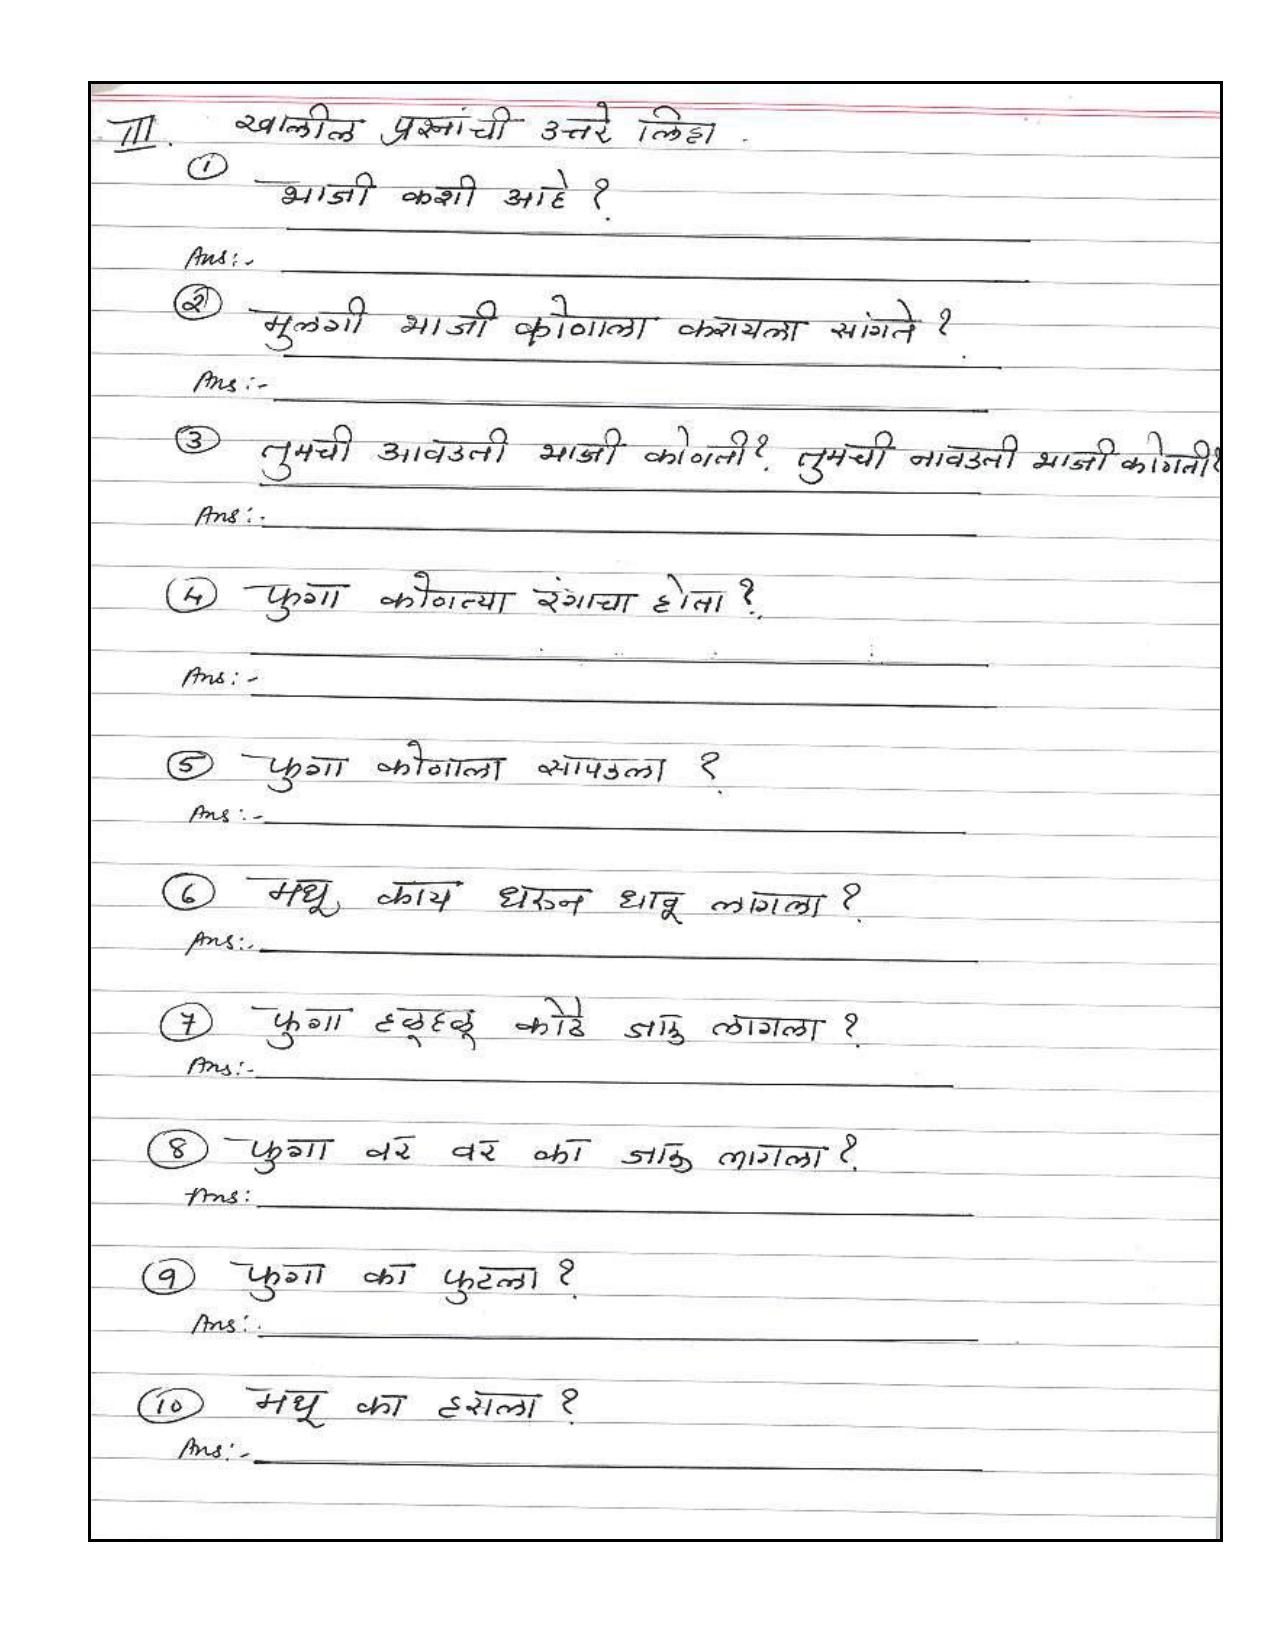 III. खालील प्रश्नांची उत्तरे लिहा.
① भाजी कशी आहे ?
Ans:-
② मुलगी भाजी कोणाला करायला सांगते ?
Ans:-
③ तुमची आवडती भाजी कोणती ? तुमची नावडती भाजी कोणती ?
Ans:-
④ फुगा कोणत्या रंगाचा होता ?
Ans:-
⑤ फुगा कोणाला सापडला ?
Ans:-
⑥ मथू काय धरुन धावू लागला ?
Ans:-
⑦ फुगा हळूहळू कोठे जाऊ लागला ?
Ans:-
⑧ फुगा वर वर का जाऊ लागला ?
Ans:
⑨ फुगा का फुटला ?
Ans:-
⑩ मथू का हसला ?
Ans:-